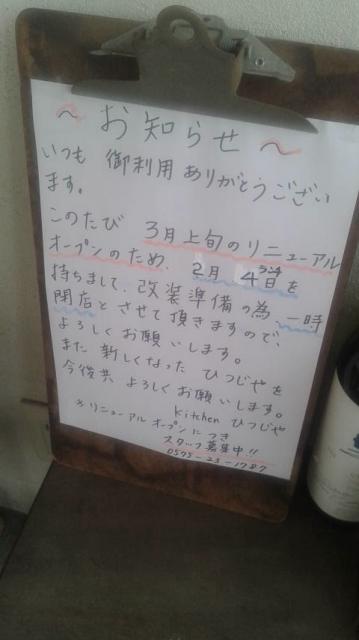 ～お知らせ～
いつも 御利用ありがとうござい
ます。
このたび 3月上旬のリニューアル
オープンのため、2月 4日を
持ちまして、改装準備の為、一時
閉店とさせて頂きますので、
よろしくお願いします。
また 新しくなった ひつじやを
今後共 よろしくお願いします。
kitchen ひつじや
※リニューアル オープンにつき
スタッフ募集中!!
0575-23-1787